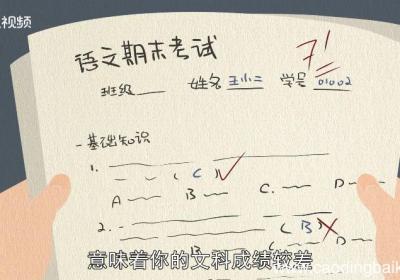 视频
语文期末考试
71
班级 姓名 王小二 学号 01002
一基础知识
1.
( C )
A B C. D
2.
( B )
A B C. D
意味着你的文科成绩较差
www.caodingbaik